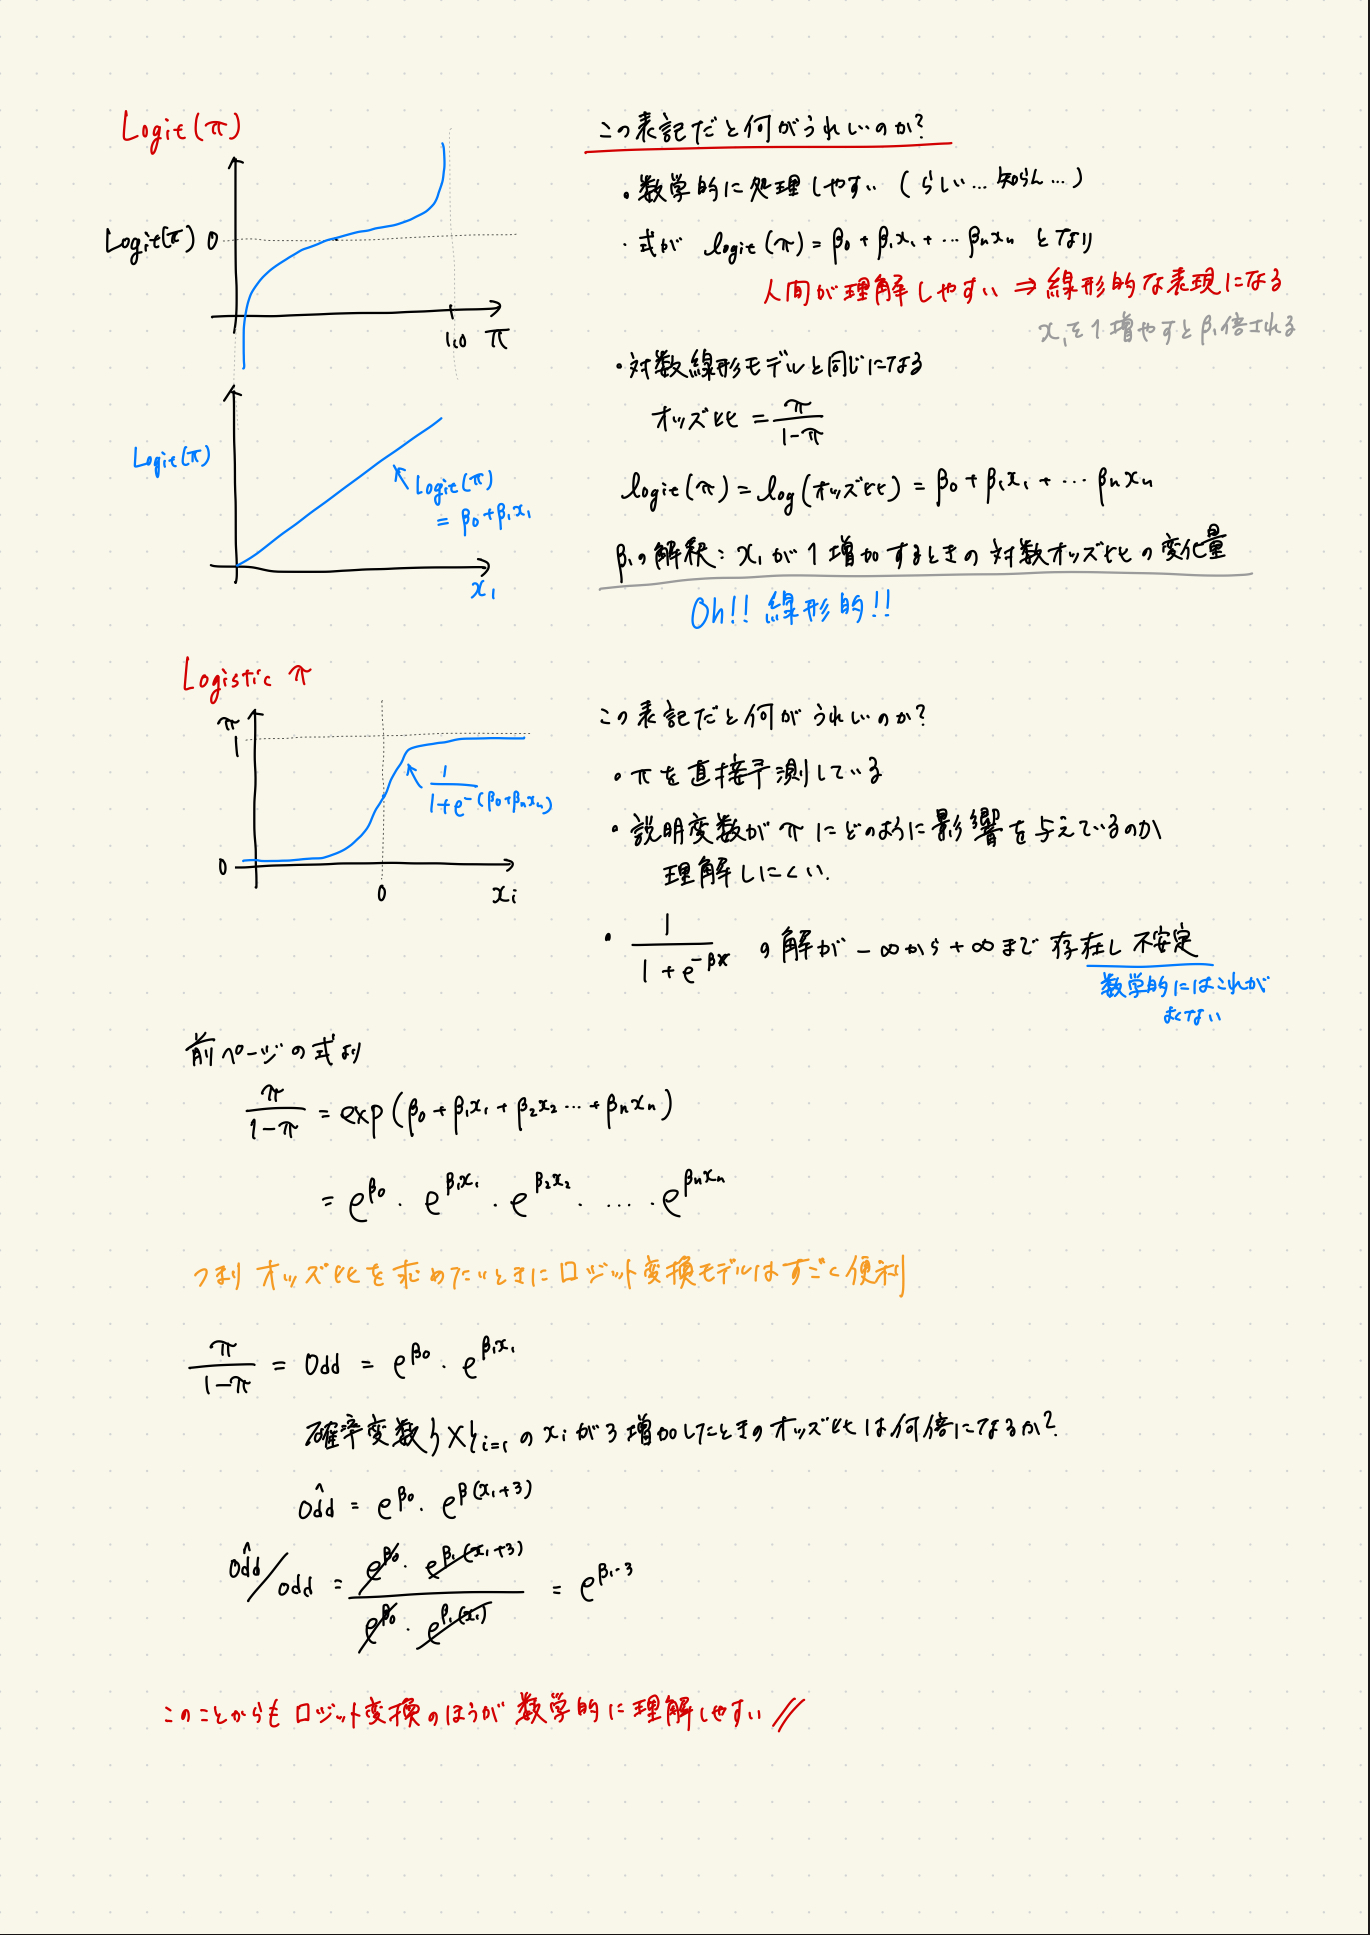 Logit(π)
Logit(π) 0
1.0 π
この表記だと何がうれしいのか?
・数学的に処理しやすい (らしい… 知らん…)
・式が logit(π) = β₀ + β₁x₁ + … βₙxₙ となり
人間が理解しやすい ⇒ 線形的な表現になる
x₁を1増やすとβ₁倍される
・対数線形モデルと同じになる
オッズ比 = π/(1-π)
logit(π) = log(オッズ比) = β₀ + β₁x₁ + … βₙxₙ
β₁の解釈: x₁が1増加するときの対数オッズ比の変化量
Oh!! 線形的!!
Logit(π)
Logit(π)
= β₀+β₁x₁
x₁
Logistic π
π
1
1/(1+e^-(β₀+βₙxₙ))
0
0
xᵢ
この表記だと何がうれしいのか?
・πを直接予測している
・説明変数がπにどのように影響を与えているのか
理解しにくい.
・1/(1+e^-βx) の解が -∞から+∞まで存在し不安定
数学的にはこれが
よくない
前ページの式より
π/(1-π) = exp(β₀ + β₁x₁ + β₂x₂ … + βₙxₙ)
= e^β₀ · e^β₁x₁ · e^β₂x₂ · … · e^βₙxₙ
つまりオッズ比を求めたいときにロジット変換モデルはすごく便利
π/(1-π) = Odd = e^β₀ · e^β₁x₁
確率変数{X}i=1のxᵢが3増加したときのオッズ比は何倍になるか?
Odd^ = e^β₀ · e^β(x₁+3)
Odd^/odd = (e^β₀ · e^β₁(x₁+3))/(e^β₀ · e^β₁(x₁)) = e^β₁·3
このことからもロジット変換のほうが数学的に理解しやすい //